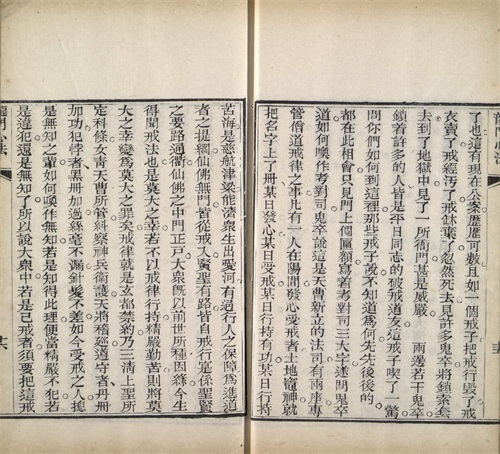 了也這有現在公案歷歷可數且如一個戒子把戒行毀了戒
衣賣了戒經污了戒鉢棄了忽然死去見許多鬼卒將鎖索套
去到了地獄中見了一所衙門甚是威嚴　兩邊若干鬼卒
鎖着許多的人皆是平日同志的破戒道友這戒子喫了一驚
問你們如何到這裡那些戒子說不知道為何先先後後的
都在此相會只見門上個匾額寫着考對司三大字遂問鬼卒
道如何喚作考對司鬼卒說這是天曹新立的法司有兩座專
管僧道戒律之事凡有一人在陽間發心受戒者土地竈神就
把名字上了冊某日發心某日受戒某日行持有功某日行持
苦海是慈航津梁能濟衆生出愛河有過行人之保障為進道
者之提綱仙佛無門皆從戒入賢聖有路皆自戒行寔係聖賢
之要路週衢仙佛之中門正戶大衆既以前世所種因緣今生
得聞戒法也是莫大之幸若不以戒律行持精嚴勤苦則將莫
大之幸變為莫大之罪矣戒律就是玄都禁約乃三清上聖所
定科條女青天曹所管糾察神兵衛護天將稽廵道守者丹冊
加功犯悖者黑冊加過絲毫不漏針髮不差如今受戒之人搃
是無知之輩如何喚作無知若是知得此理便當精嚴不犯若
是違犯還是無知了所以說大衆中若是已戒者須要把這戒
龍門心法
十六